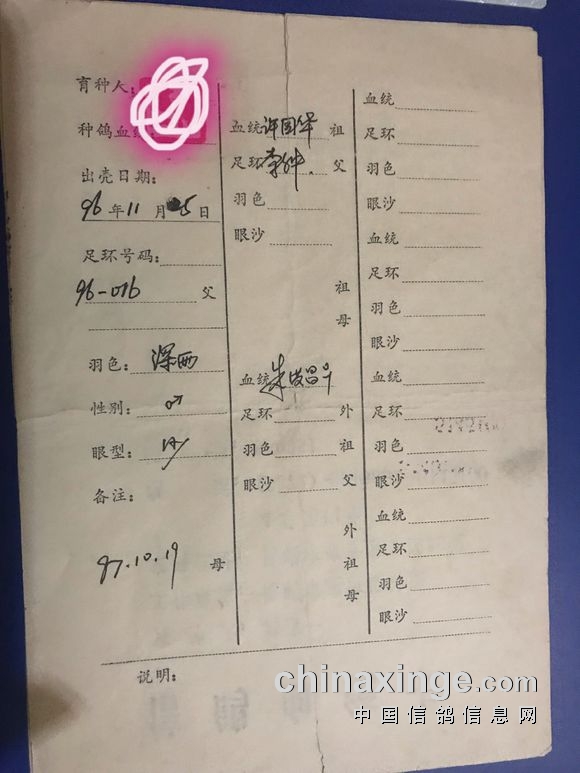 育种人：
种鸽血统
出壳日期：
96年11月25日
足环号码：
96-016 父
羽色：深西
性别：♂
眼型：沙
备注：
97.10.19 母
血统 许国华 祖
足环 父
羽色
眼沙
祖
母
血统
足环 外
羽色 祖
眼沙 父
外
祖
母
血统
足环
羽色
眼沙
血统
足环
羽色
眼沙
血统
足环
羽色
眼沙
血统
足环
羽色
眼沙
说明：
chinaxinge.com
中国信鸽信息网